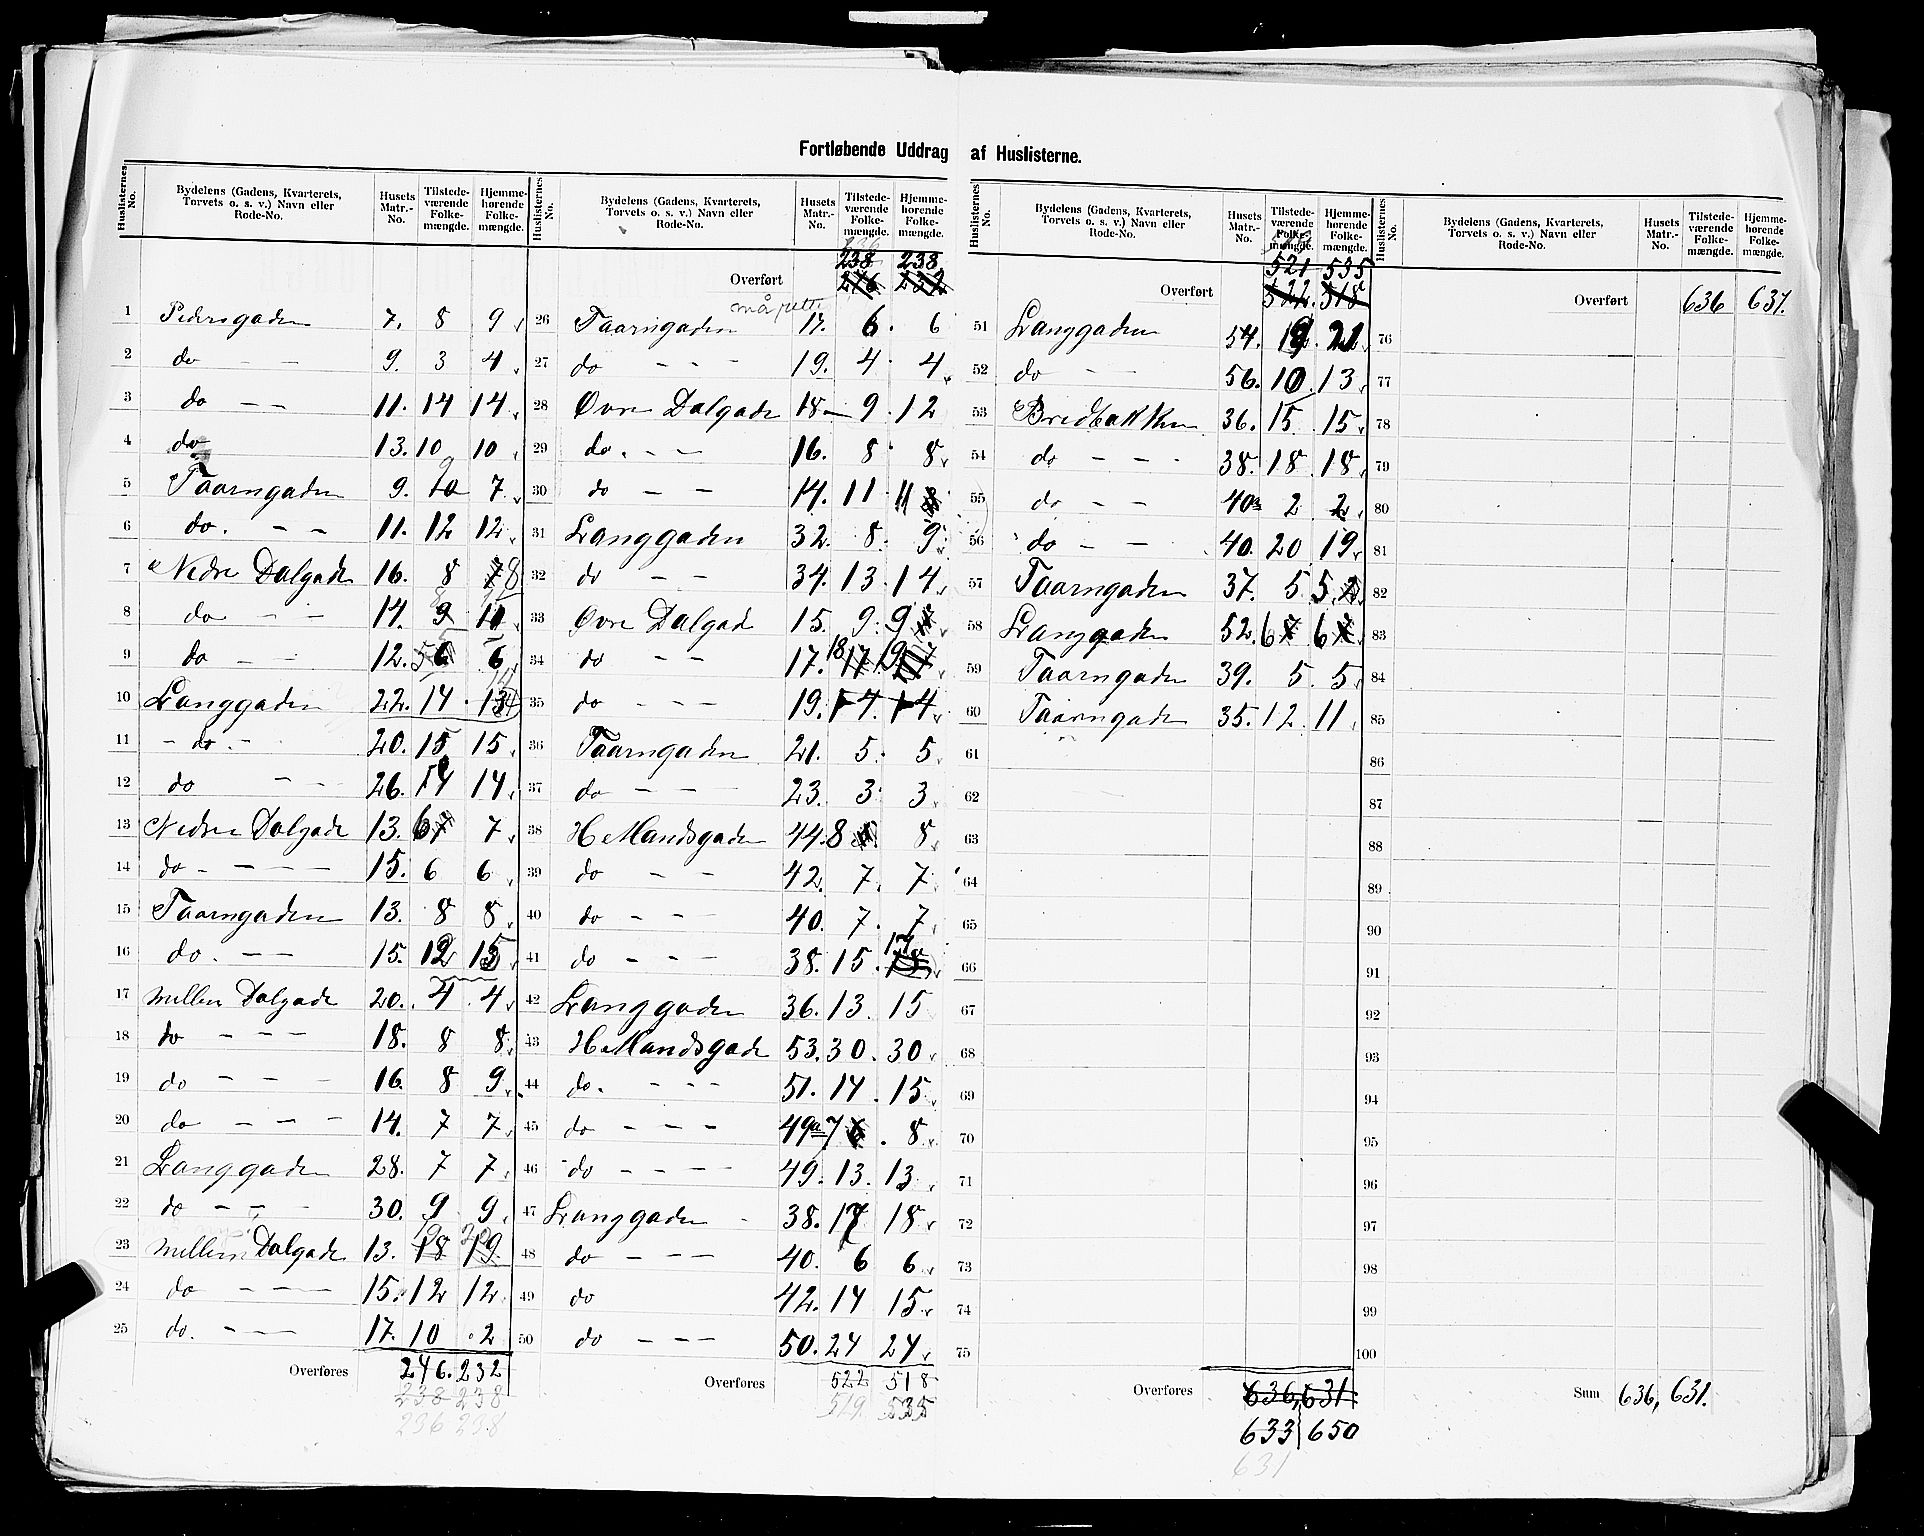 Fortløbende Uddrag af Huslisterne.
Huslisternes No. | Bydelens (Gadens, Kvarterets, Torvets o. s. v.) Navn eller Rode-No. | Husets Matr.-No. | Tilstede-værende Folke-mængde. | Hjemme-hørende Folke-mængde.
1 Pedersgaden 7. 8 9
2 do — — 9. 3 4
3 do — — 11. 14 14
4 do 13. 10 10
5 Taarngaden 9. 10 7
6 do. — — 11. 12 12
7 Nedre Dalgade 16. 8 7 8
8 do — — 14. 9 11
9 do — — 12. 5 6 6
10 Langgaden 22. 14 13
11 - do. - 20. 15 15
12 do — — 26. 14 14
13 Nedre Dalgade 13. 6 7 7
14 do - — — — 15. 6 6
15 Taarngaden 13. 8 8
16 do. — — 15. 12 15
17 Mellem Dalgade 20. 4 4
18 do — — — 18. 8 8
19 do — — — 16. 8 9
20 do — — — 14. 7 7
21 Langgaden 28. 7 7
22 do — — - 30. 9 9
23 Mellem Dalgade 13. 18 19. 19 20
24 do — — — 15. 12 12
25 do. — — — 17. 10 2
Overføres 246. 232
238 238
236 238
Huslisternes No. | Bydelens (Gadens, Kvarterets, Torvets o. s. v.) Navn eller Rode-No. | Husets Matr.-No. | Tilstede-værende Folke-mængde. | Hjemme-hørende Folke-mængde.
236
238 238
Overført 246 232
26 Taarngaden 17. 6. 6
27 do — — — 19. 4. 4
28 Øvre Dalgade 18 — 9. 12
29 do. — — 16. 8 8
30 do — — 14. 11 11 8
31 Langgaden 32. 8. 9
32 do — — 34. 13. 14
33 Øvre Dalgade 15. 9. 9
34 do — — 17. 18 17. 19
35 do — — — 19. 4. 4
36 Taarngaden 21. 5. 5
37 do — — — 23. 3. 3
38 H Mandsgaden 44. 8 8
39 do — — 42. 7. 7
40 do — — — 40. 7. 7
41 do — — — 38. 15. 17 18
42 Langgaden 36. 13. 15
43 H Mandsgade 53. 30. 30
44 do. — — — 51. 14 15
45 do — — — 49a 7 6. 8
46 do — — — — 49. 13. 13
47 Langgaden - 38. 17 18
48 do — — — 40. 6 6
49 do 42. 14 15
50 do — — — 50. 24 24
Overføres 522 518
519 535
Huslisternes No. | Bydelens (Gadens, Kvarterets, Torvets o. s. v.) Navn eller Rode-No. | Husets Matr.-No. | Tilstede-værende Folke-mængde. | Hjemme-hørende Folke-mængde.
521 535
Overført 522. 518
51 Langgaden 54. 19. 21
52 do — — 56. 10. 13
53 Bredbakken 36. 15. 15
54 do — — - 38. 18. 18
55 do — — 40a 2 2
56 do — — 40. 20 19
57 Taarngaden 37. 5. 5
58 Langgaden 52. 6 7 6 7
59 Taarngaden 39. 5. 5
60 Taarngaden 35. 12. 11
61
62
63
64
65
66
67
68
69
70
71
72
73
74
75
Overføres 636, 631
633 650
631
Huslisternes No. | Bydelens (Gadens, Kvarterets, Torvets o. s. v.) Navn eller Rode-No. | Husets Matr.-No. | Tilstede-værende Folke-mængde. | Hjemme-hørende Folke-mængde.
Overført 636 631.
76
77
78
79
80
81
82
83
84
85
86
87
88
89
90
91
92
93
94
95
96
97
98
99
100
Sum 636, 631.